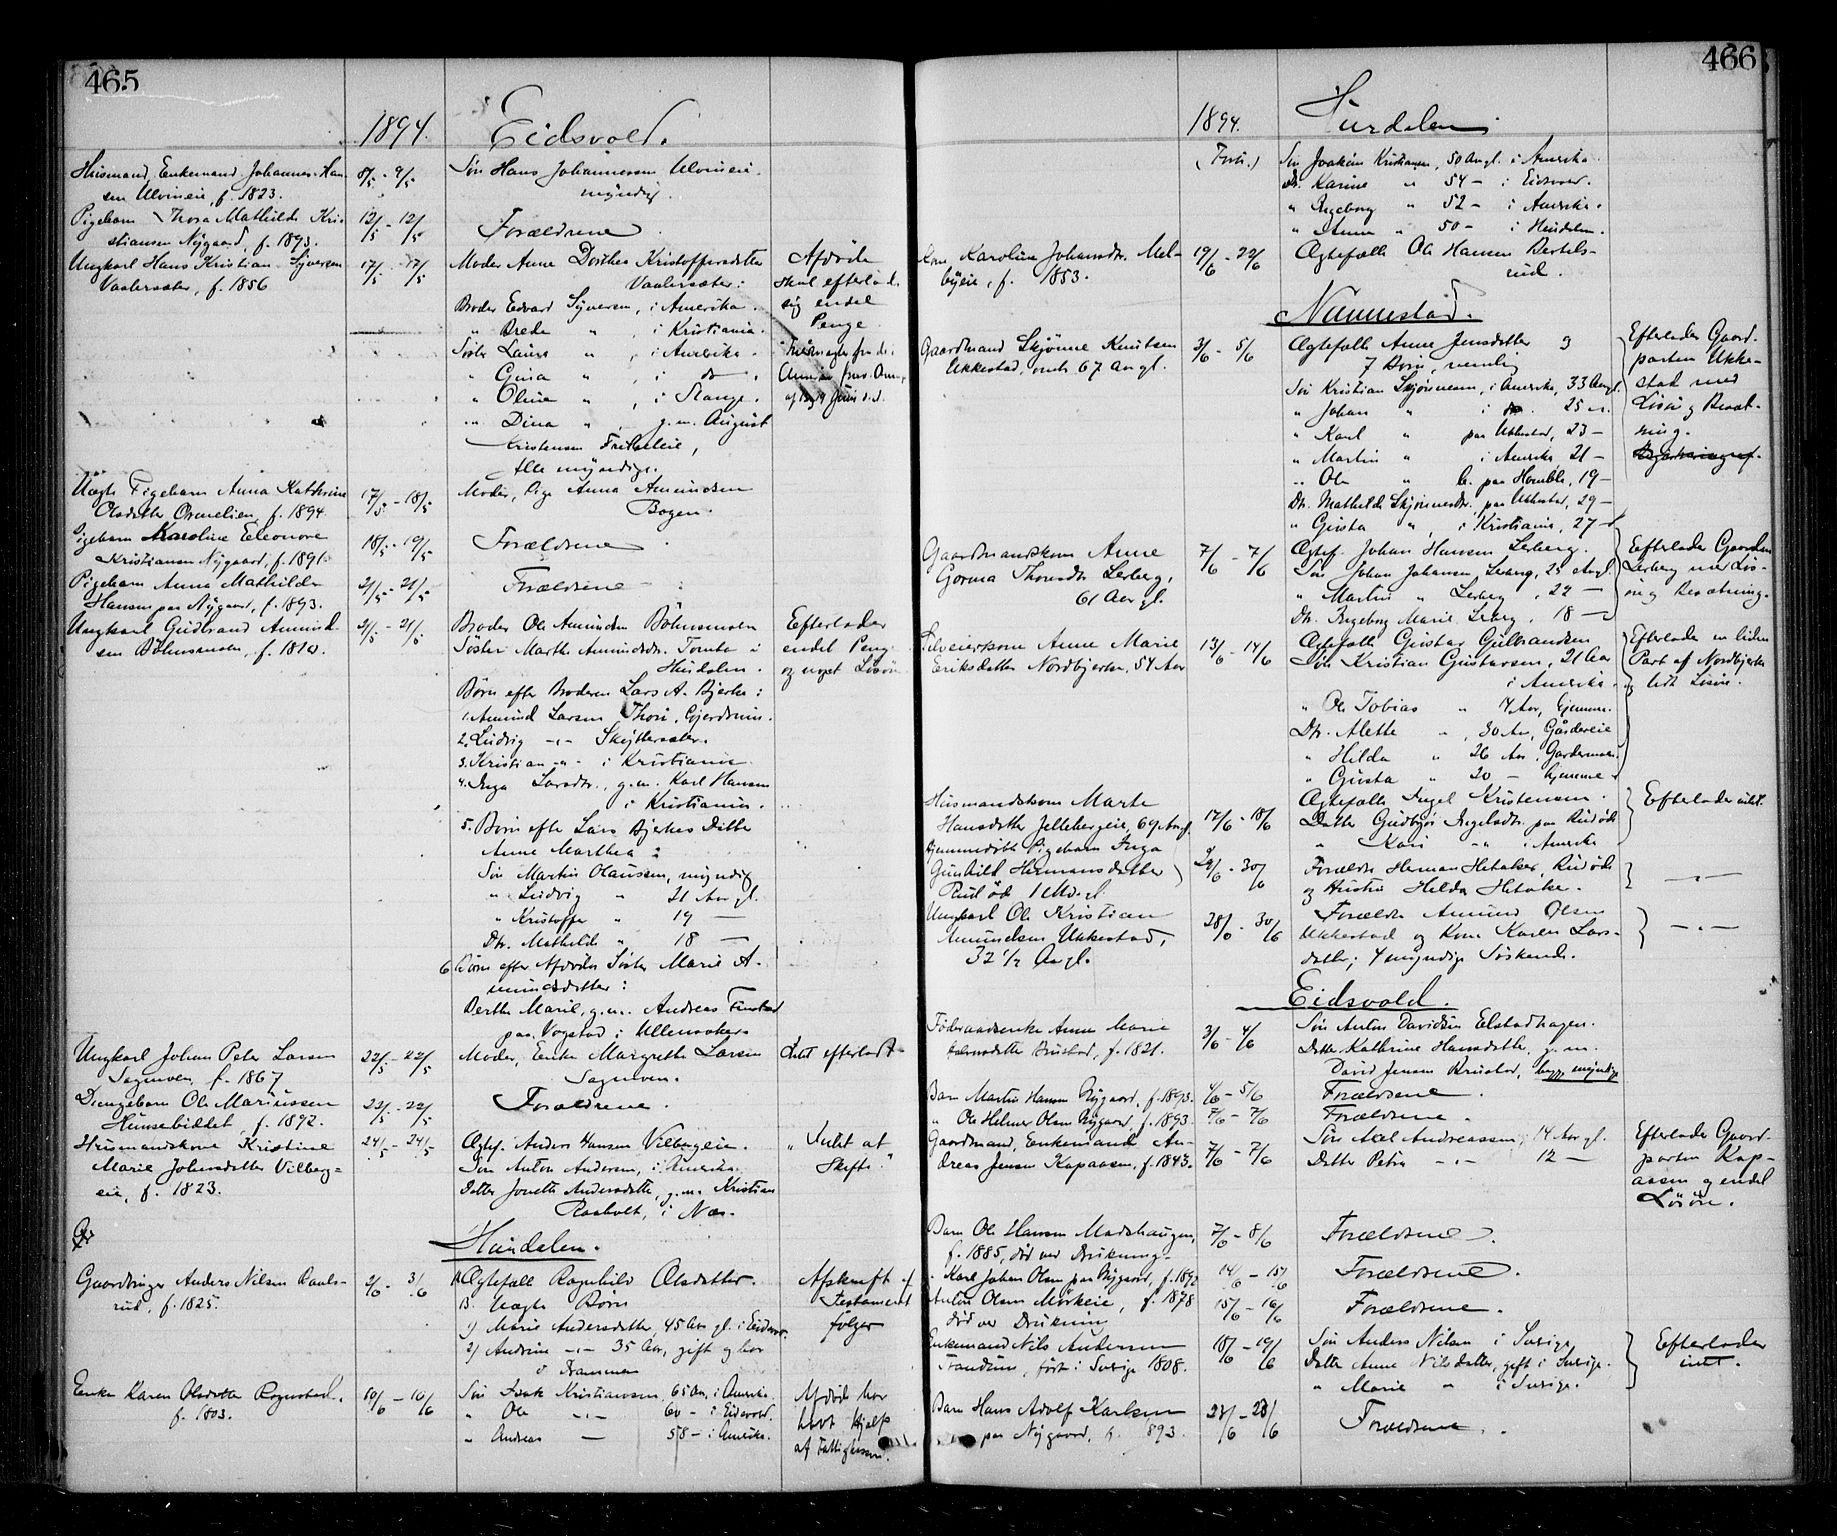 465
1894. Eidsvold.
Husmand, Enkemand Johannes Han-
sen Ulvineie, f. 1823.
8/5 - 9/5
Søn Hans Johannessen Ulvineie.
myndig.
Pigebarn Thora Mathilde Kri-
stiansen Nygaard, f. 1893.
12/5 - 12/5
Forældrene
Ungkarl Hans Kristian Syversen
Vaalersæter, f. 1856
17/5 - 17/5
Moder Anne Dorthea Kristoffersdatter
Vaalersæter:
Broder Edvard Syversen, i Amerika.
" Brede " , i Kristiania.
Søster Laura " , i Amerika.
" Gina " , i do .
" Oline " , i Stange.
" Dina " , g.m. August
Kristensen
Alle myndige.
Afdøde
skal efterlade
sig endel
Penge
Uægte Pigebarn Anna Kathrine
Olsdatter Ormelien, f. 1894
17/5 - 18/5
Moder, Pige Anna Amundsen
Bogen.
Pigebarn Karoline Eleonore
Kristiansen Nygaard, f. 1891
18/5 - 19/5
Forældrene
Pigebarn Anna Mathilde
Hansen paa Nygaard, f. 1893.
21/5 - 21/5
Forældrene
Ungkarl Gudbrand Amund-
sen Bøhnsmoen, f. 1810.
21/5 - 21/5
Broder Ole Amundsen Bøhnsmoen
Søster Marthe Amundsdtr. Tomta i
Hurdalen.
Børn efter Broderen Lars A. Bjerke:
1. Amund Larsen Thori, Gjerdrum.
2. Ludvig -"- Skyttersæter.
3. Kristian -"- i Kristiania
4. Inga Larsdtr., g.m. Karl Hansen
i Kristiania.
5. Børn efter Lars Bjerkes Datter
Anne Marthea:
Søn Martin Olaussen, myndig
" Ludvig " 21 Aar gl.
" Kristoffer " 19 —
Dtr. Mathilde " 18 —
6. Børn efter Afdødes Søster Marie A-
mundsdatter:
Berthe Marie, g.m. Andreas
paa Vogstad i Ullensaker
Efterlader
endel Penge
og noget Løsøre
Ungkarl Johan Peter Larsen
Sagmoen, f. 1867
22/5 - 22/5
Moder, Enke Margrethe Larsen
Sagmoen.
Lidt efterladt
Drengebarn Ole Mariussen
Hunsebidtet, f. 1892.
22/5 - 22/5
Forældrene.
Husmandskone Kristine
Marie Johnsdatter Vilberg-
eie, f. 1823.
24/5 - 24/5
Ægtef. Anders Hansen Vilbergeie.
Søn Anton Andersen, i Amerika.
Datter Jonette Andersdatter, g.m. Kristian
Raaholt, i Nes.
" Intet at
Skifte."
Hurdalen.
Gaardbruger Anders Nilsen Rauls-
rud, f. 1825.
2/6 - 3/6
A. Ægtefælle Ragnhild Olsdatter.
B. Uægte Børn
1) Marie Andersdatter 45 Aar gl. i Eidsvold.
2) Andrine -"- 35 Aar, gift og bor
i Drammen
Afskrift af
Testament
følger
Enke Karen Olsdatter Rognstad.
f. 1803.
10/6 - 16/6
Søn Isak Kristiansen 65 Aar, i Amerika.
" Ole -"- 60 - i Eidsvold.
" Andreas — 58 - i Amerika.
Afdøde har
havt Hjælp
af Fattigkassen.
466
1894. Hurdalen
(Forts.)
Søn Joakim Kristiansen, 50 Aar gl. i Amerika.
Dtr. Karine " 54 - i Eidsvold.
" Ingeborg " 52 - i Amerika.
" Anne " 50 - i Hurdalen.
Kone Karoline Johansdtr. Mel-
byeie, f. 1853.
19/6 - 22/6
Ægtefælle Ole Hansen Bertels-
rud.
Nannestad.
Gaardmand Skjønne Knutsen
Ukkestad, omtr. 67 Aar gl.
3/6 - 5/6
Ægtefælle Anne Jensdatter og
7 Børn, nemlig
Søn Kristian Skjønnesen, i Amerika, 33 Aar gl.
" Johan " i do. 25 —
" Karl " paa Ukkestad, 23 —
" Martin " i Amerika 21 —
" Ole " paa Homble, 19 —
Dtr. Mathilde Skjønnesdtr., paa Ukkestad, 29 —
" Gusta " , i Kristiania, 27 —
Efterlader Gaard-
parten Ukke-
stad med
Løsøre og Besæt-
ning.
Gaardmandskone Anne
Gorina Thoresdtr. Lerberg,
61 Aar gl.
7/6 - 7/6
Ægtef. Johan Hansen Lerberg.
Søn Johan Johansen Lerberg, 25 Aar gl
" Martin " Lerberg , 22 —
Dtr. Ingeborg Marie Lerberg, 18 —
Efterlader Gaarden
Lerberg med Løs-
øre og Besætning.
Selveierkone Anne Marie
Eriksdatter Nordbjerke, 54 Aar
13/6 - 14/6
Ægtefælle Gustav Gulbrandsen
Søn Kristian Gustavsen, 21 Aar
i Amerika.
" Ole Tobias " 14 Aar, hjemme.
Dtr. Alette " , 30 Aar, Gårdereie
" Hilda " 26 Aar, Gardermoen
" Gusta " 20 — hjemme
Efterlader en liden
Part af Nordbjerke
og lidt Løsøre.
Husmandskone Marte
Hansdatter Jellebergeie, 69 Aar gl.
17/6 - 18/6
Ægtefælle Ingel Kristensen.
Datter Gudbjør Ingelsdtr. paa Rudød
" Kari -"- i Amerika
Efterlader intet.
Hjemmedøbt Pigebarn Inga
Gunhild Hermansdatter
Rudød 1 Md. gl.
29/6 - 30/6
Forældre Herman Hetaker, Rudød
og Hustru Hilda Hetaker.
—"—
Ungkarl Ole Kristian
Amundsen Ukkestad,
32 1/2 Aar gl.
28/6 - 30/6
Forældre Amund Olsen
Ukkestad og Kone Karen Lars-
datter; 4 myndige Søskende.
—"—
Eidsvold.
Føderaadsenke Anne Marie
Brustad, f. 1821.
3/6 - 4/6
Søn Anton Davidsen Elstadhagen.
Datter Kathrine Hansdatter, g.m.
David Jensen Brustad, begge myndige
Barn Martin Hansen Nygaard, f. 1893.
4/6 - 5/6
Forældrene.
" Ole Helmer Olsen Nygaard, f. 1893.
7/6 - 7/6
Forældrene.
Gaardmand, Enkemand An-
dreas Jensen Kapaasen, f. 1843.
7/6 - 7/6
Søn Axel Andreassen, 14 Aar gl.
Datter Petra -"- 12 —
Efterlader Gaard-
parten Kap-
aasen og endel
Løsøre.
Barn Ole Hansen Madshaugen,
f. 1885, død ved Drukning.
7/6 - 8/6
Forældrene.
" Karl Johan Olsen paa Nygaard, f. 1892
14/6 - 15/6
Forældrene.
Anton Olsen Mørkeie, f. 1878
død ved Drukning
15/6 - 16/6
Forældrene.
Enkemand Nils Andersen
Trandum, født i Sverige 1808.
18/6 - 19/6
Søn Anders Nilsen i Sverige
Datter Anne Nilsdatter, gift i Sverige.
" Marie " i Sverige.
Efterlader
intet.
Barn Hans Adolf Karlsen
paa Nygaard, f. 1893.
23/6 - 23/6
Forældrene.